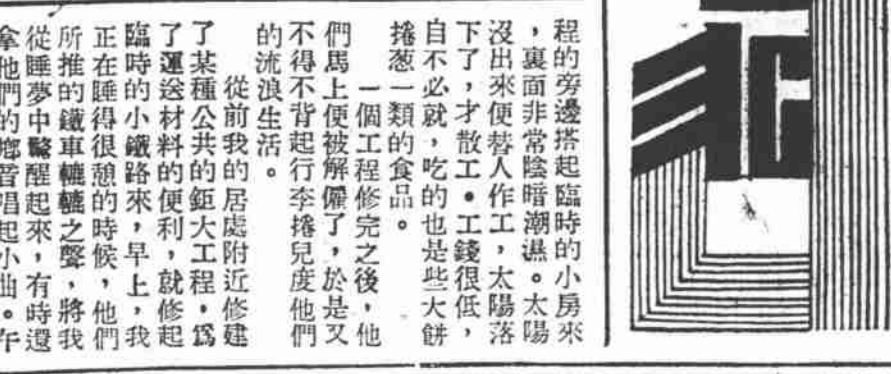 程的旁邊搭起臨時的小房來
，裏面非常陰暗潮濕。太陽
沒出來便替人作工，太陽落
下了，才散工。工錢很低，
自不必就，吃的也是些大餅
捲葱一類的食品。
一個工程修完之後，他
們馬上便被解僱了，於是又
不得不背起行李捲兒度他們
的流浪生活。
從前我的居處附近修建
了某種公共的鉅大工程，爲
了運送材料的便利，就修起
臨時的小鐵路來，早上，我
正在睡得很憩的時候，他們
所推的鐵車轆轆之聲，將我
從睡夢中驚醒起來，有時還
拿他們的鄉音唱起小曲。午